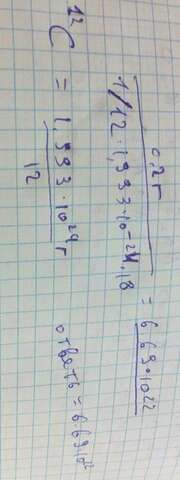 0,2 г
1/12 · 1,993 · 10⁻²⁴ · 18 = 6 69 · 10²²
¹²C = 1,993 · 10²⁴ г
12
ответь = 6 69 · 10²²